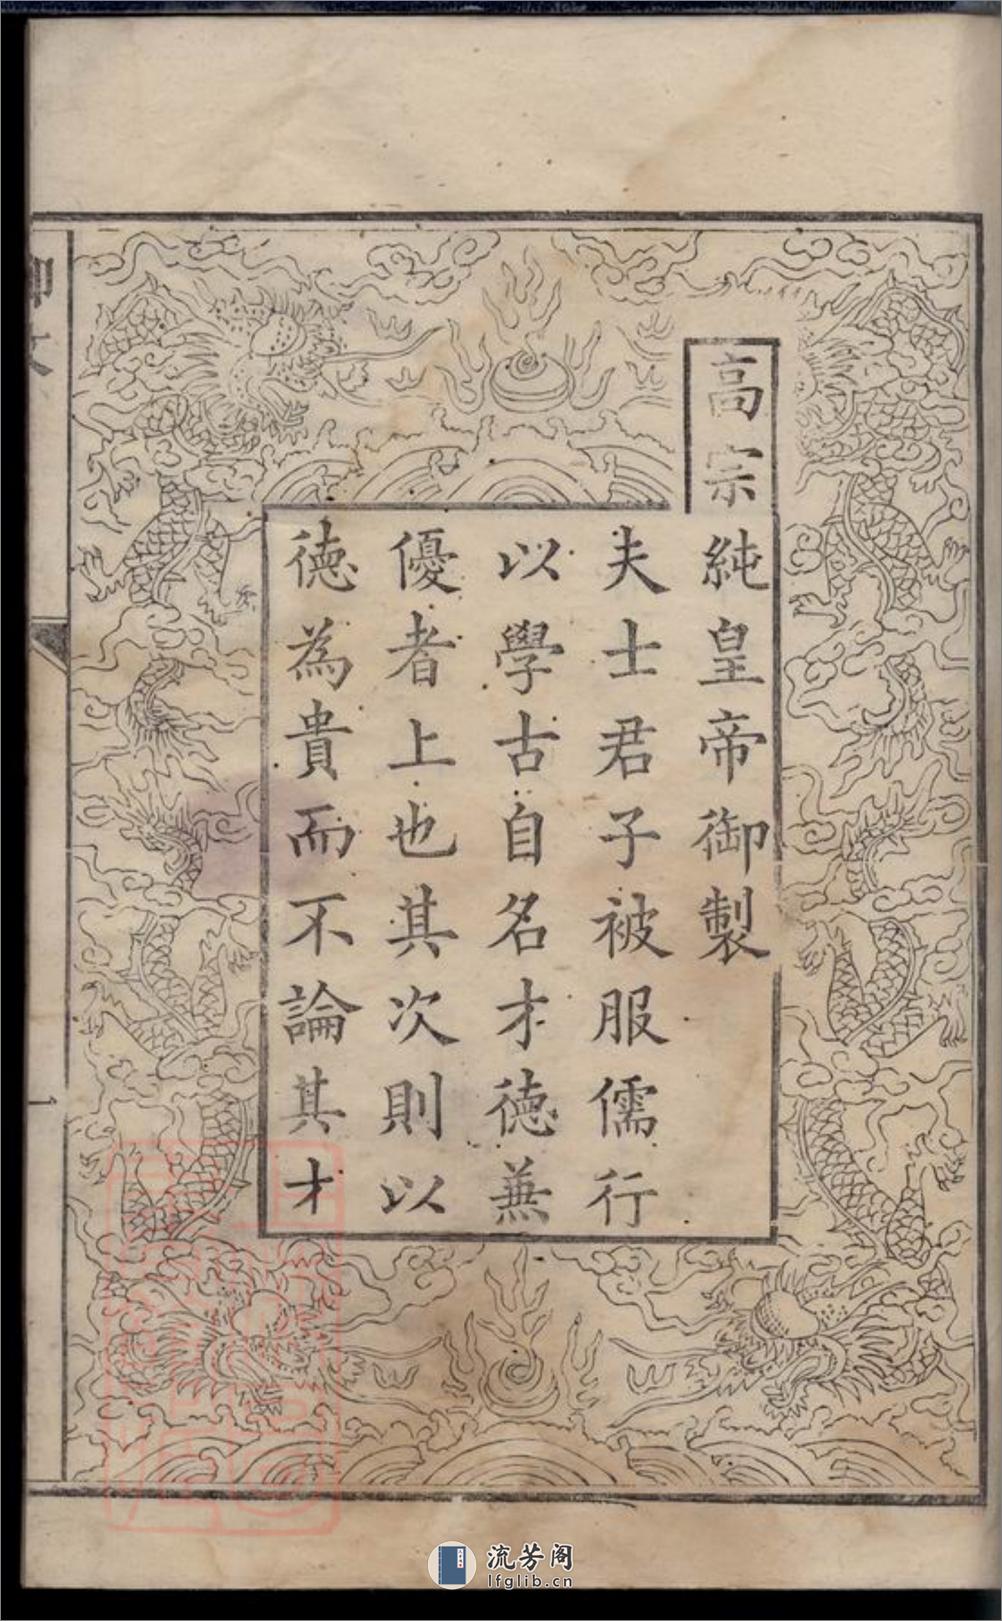 高宗純皇帝御製
夫士君子被服儒行
以學古自名才德蕪
優者上也其次則以
德為貴而不論其才
流芳阁
lfglib.cn